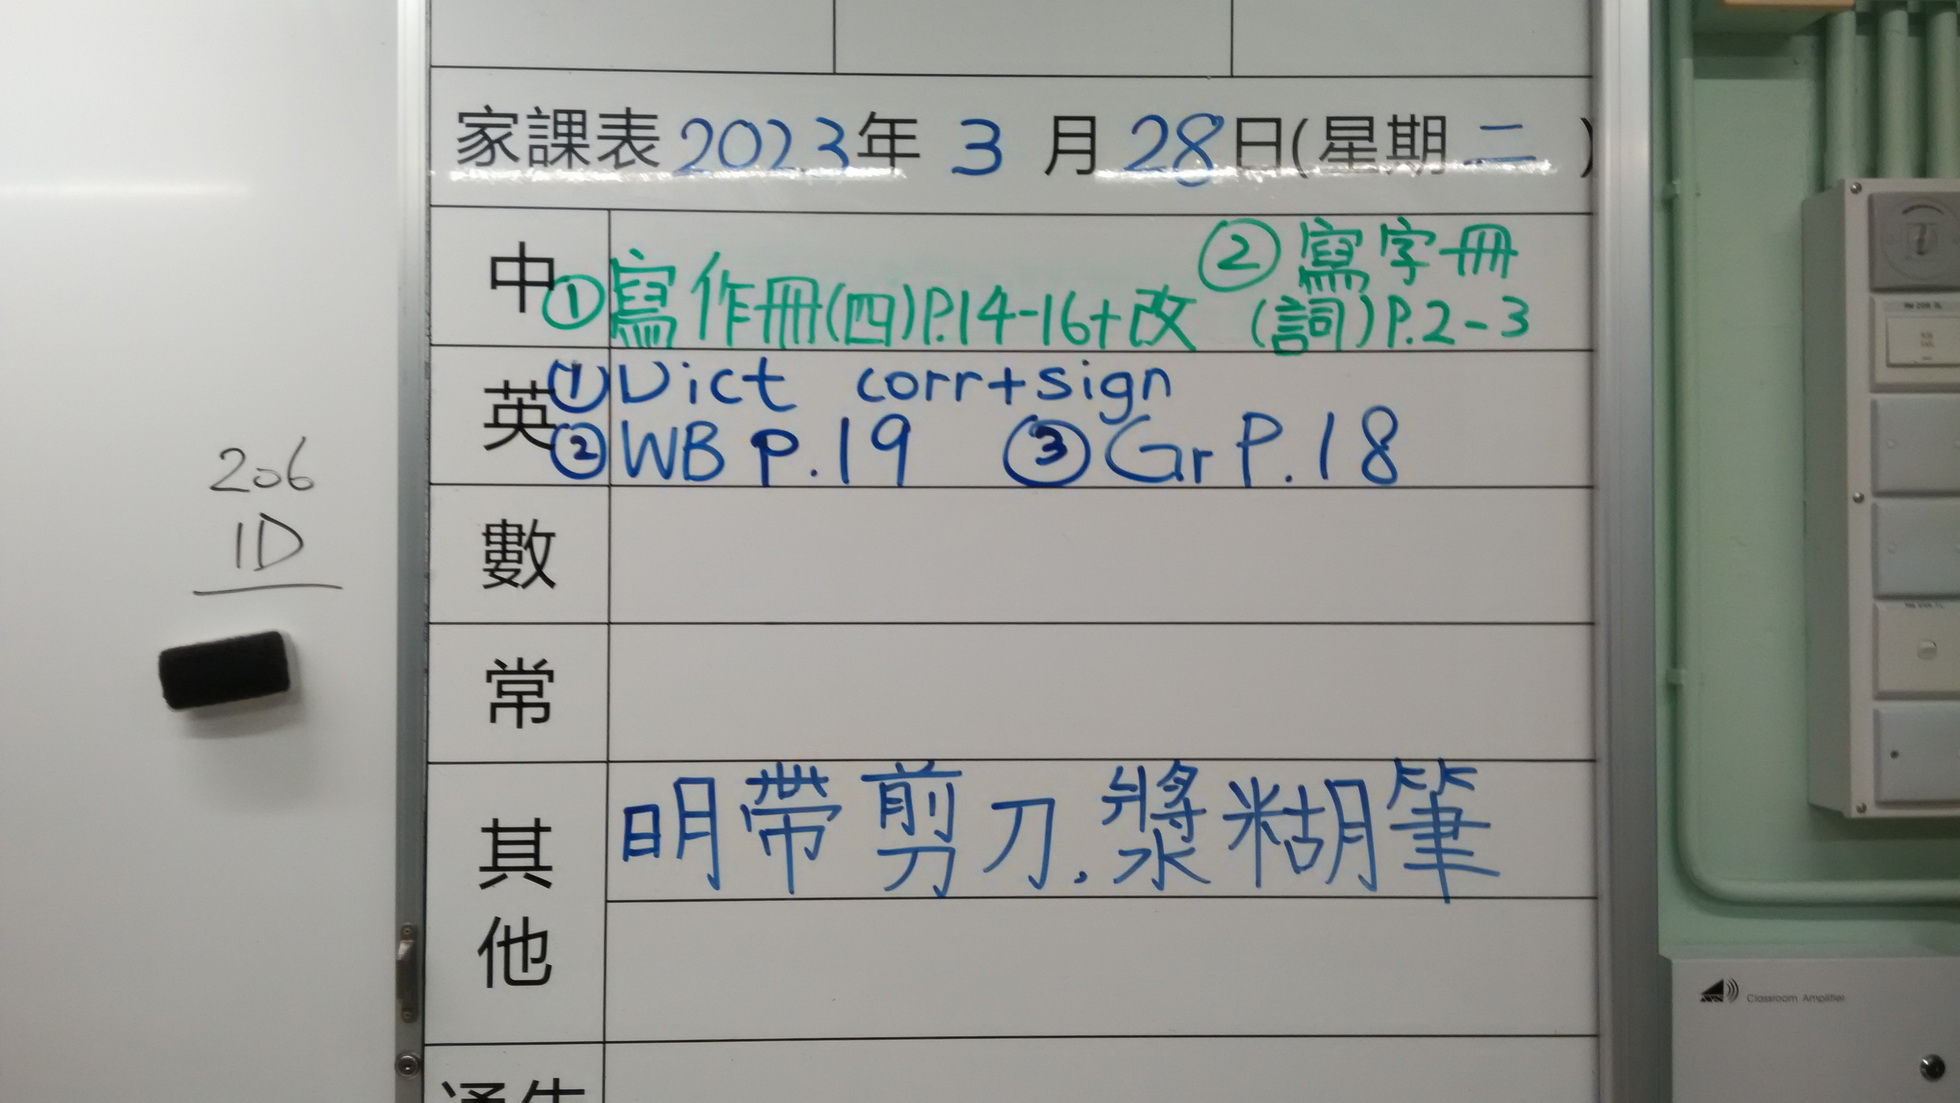 家課表 2023年 3 月 28日(星期 二 )
中 ①寫作冊(四)P.14-16+改 ②寫字冊
(詞)P.2-3
英 ①Dict corr+sign
②WB p.19 ③Gr P.18
數
常
其他
明帶剪刀.漿糊筆
206
1D
Classroom Amplifier